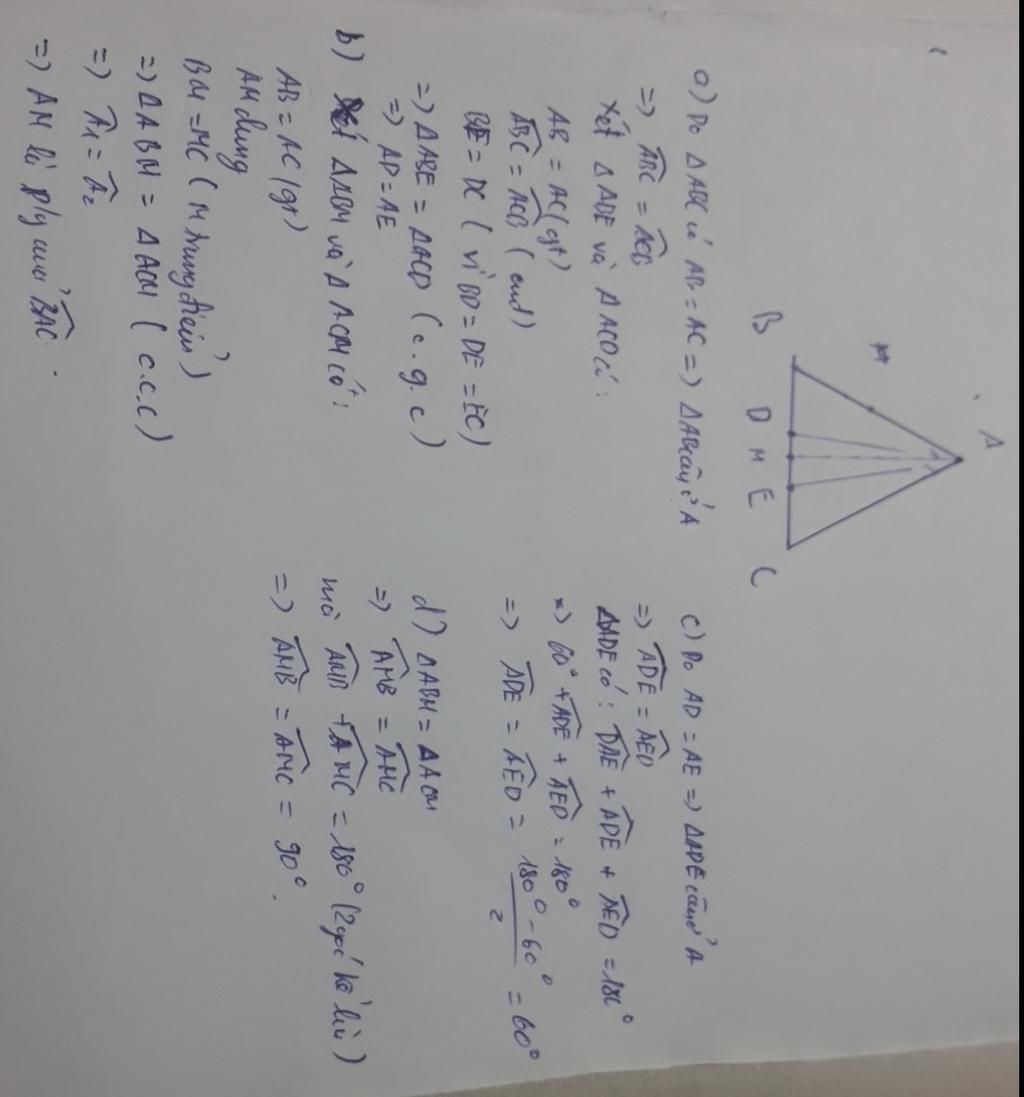 A
B D M E C
a) Do ΔABC có AB = AC => ΔABC cân ở A
=> ABC = ACB
Xét ΔADE và ΔACD có:
AB = AC (gt)
ABC = ACB (cmt)
BE = DC (vì BD = DE = EC)
=> ΔABE = ΔACD (c.g.c)
=> AD = AE
b) Xét ΔABM và ΔACM có:
AB = AC (gt)
AM chung
BM = MC (M trung điểm)
=> ΔABM = ΔACM (c.c.c)
=> A1 = A2
=> AM là p/g của BAC.
c) Do AD = AE => ΔADE cân ở A
=> ADE = AED
ΔADE có: DAE + ADE + AED = 180°
=> 60° + ADE + AED = 180°
=> ADE = AED = 180° - 60° / 2 = 60°
d) ΔABM = ΔACM
=> AMB = AMC
mà AMB + AMC = 180° (2 góc kề bù)
=> AMB = AMC = 90°.